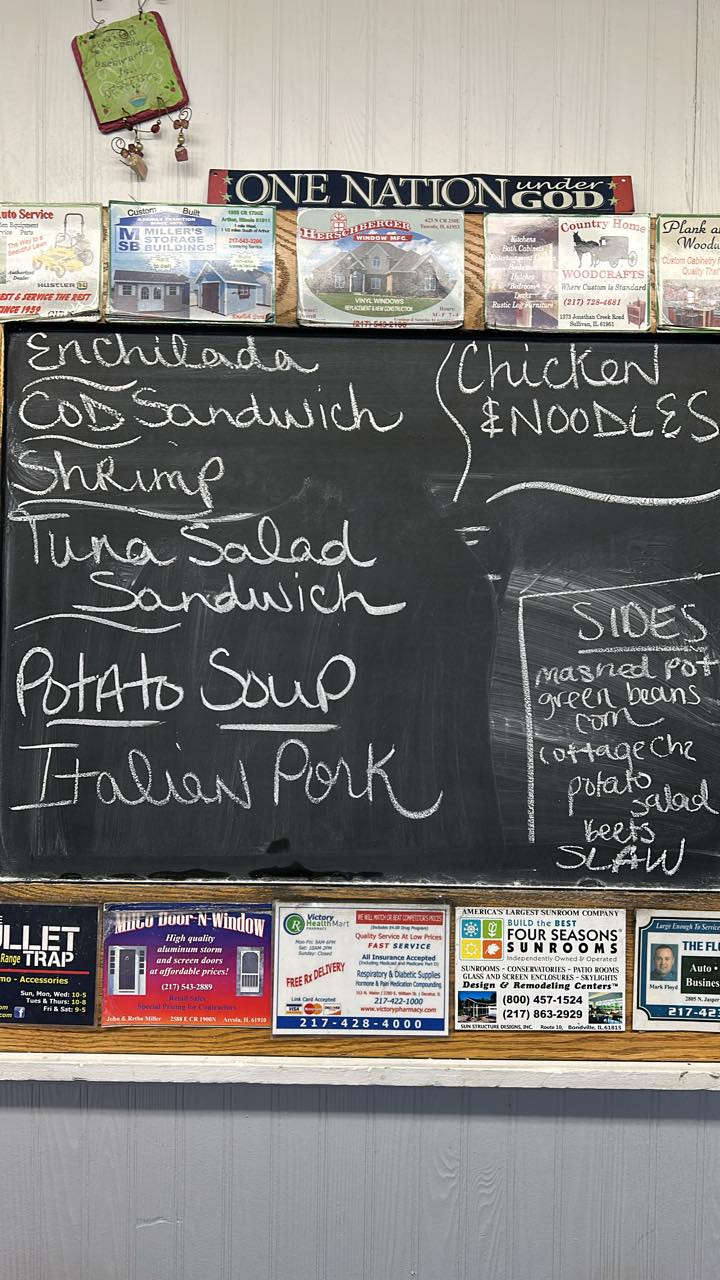 ONE NATION under GOD
Auto Service
Custom Built
A FAMILY TRADITION
MSB MILLER'S
STORAGE
BUILDINGS
Arthur, Illinois 61911
217-543-3206
HUSTLER
BEST & SERVICE THE BEST
SINCE 1959
HERSCHBERGER
WINDOW MFG.
623 N CR 250E
Tuscola, IL 61953
VINYL WINDOWS
REPLACEMENT & NEW CONSTRUCTION
Kitchens
Bath Cabinets
Desks
Rustic Log Furniture
Country Home
WOODCRAFTS
Where Custom is Standard
(217) 728-4681
1373 Jonathan Creek Road
Sullivan, IL 61951
Plank a
Custom Cabinetry
Enchilada
COD Sandwich
Shrimp
Tuna Salad
Sandwich
Potato Soup
Italian Pork
Chicken
& NOODLES
SIDES
mashed pot
green beans
corn
cottage chz
potato
salad
beets
SLAW
ULLET
Range TRAP
mo - Accessories
Sun, Mon, Wed: 10-5
Tues & Thurs: 10-8
Fri & Sat: 9-5
Milco Door-N-Window
High quality
aluminum storm
and screen doors
at affordable prices!
(217) 543-2889
Retail Sales
Special Pricing for Contractors
John & Retha Miller 2588 E CR 1900N Arcola, IL 61910
Victory
HealthMart
PHARMACY
Mon-Fri: 9AM-6PM
Sat: 10AM-2PM
Sunday: Closed
FREE Rx DELIVERY
Link Card Accepted
VISA
WE WILL MATCH OR BEAT COMPETITOR'S PRICES
(Includes $4.00 Drug Program)
Quality Service At Low Prices
FAST SERVICE
All Insurance Accepted
(Including Medicaid and Medicare Part D)
Respiratory & Diabetic Supplies
Hormone & Pain Medication Compounding
217-422-1000
www.victorypharmacy.com
217-428-4000
AMERICA'S LARGEST SUNROOM COMPANY
BUILD the BEST
FOUR SEASONS
SUNROOMS
Independently Owned & Operated
SUNROOMS - CONSERVATORIES - PATIO ROOMS
GLASS AND SCREEN ENCLOSURES - SKYLIGHTS
Design & Remodeling Centers™
(800) 457-1524
(217) 863-2929
SUN STRUCTURE DESIGNS, INC. Route 10, Bondville, IL 61815
Large Enough To Service
THE FL
Auto •
Busines
Mark Floyd
2805 N. Jasper
217-42